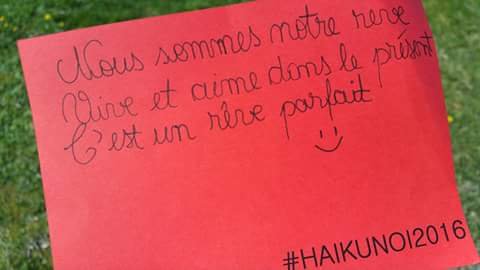 Nous sommes notre reve
Vive et aime dans le présent
C'est un rêve parfait
#HAIKUNOI2016